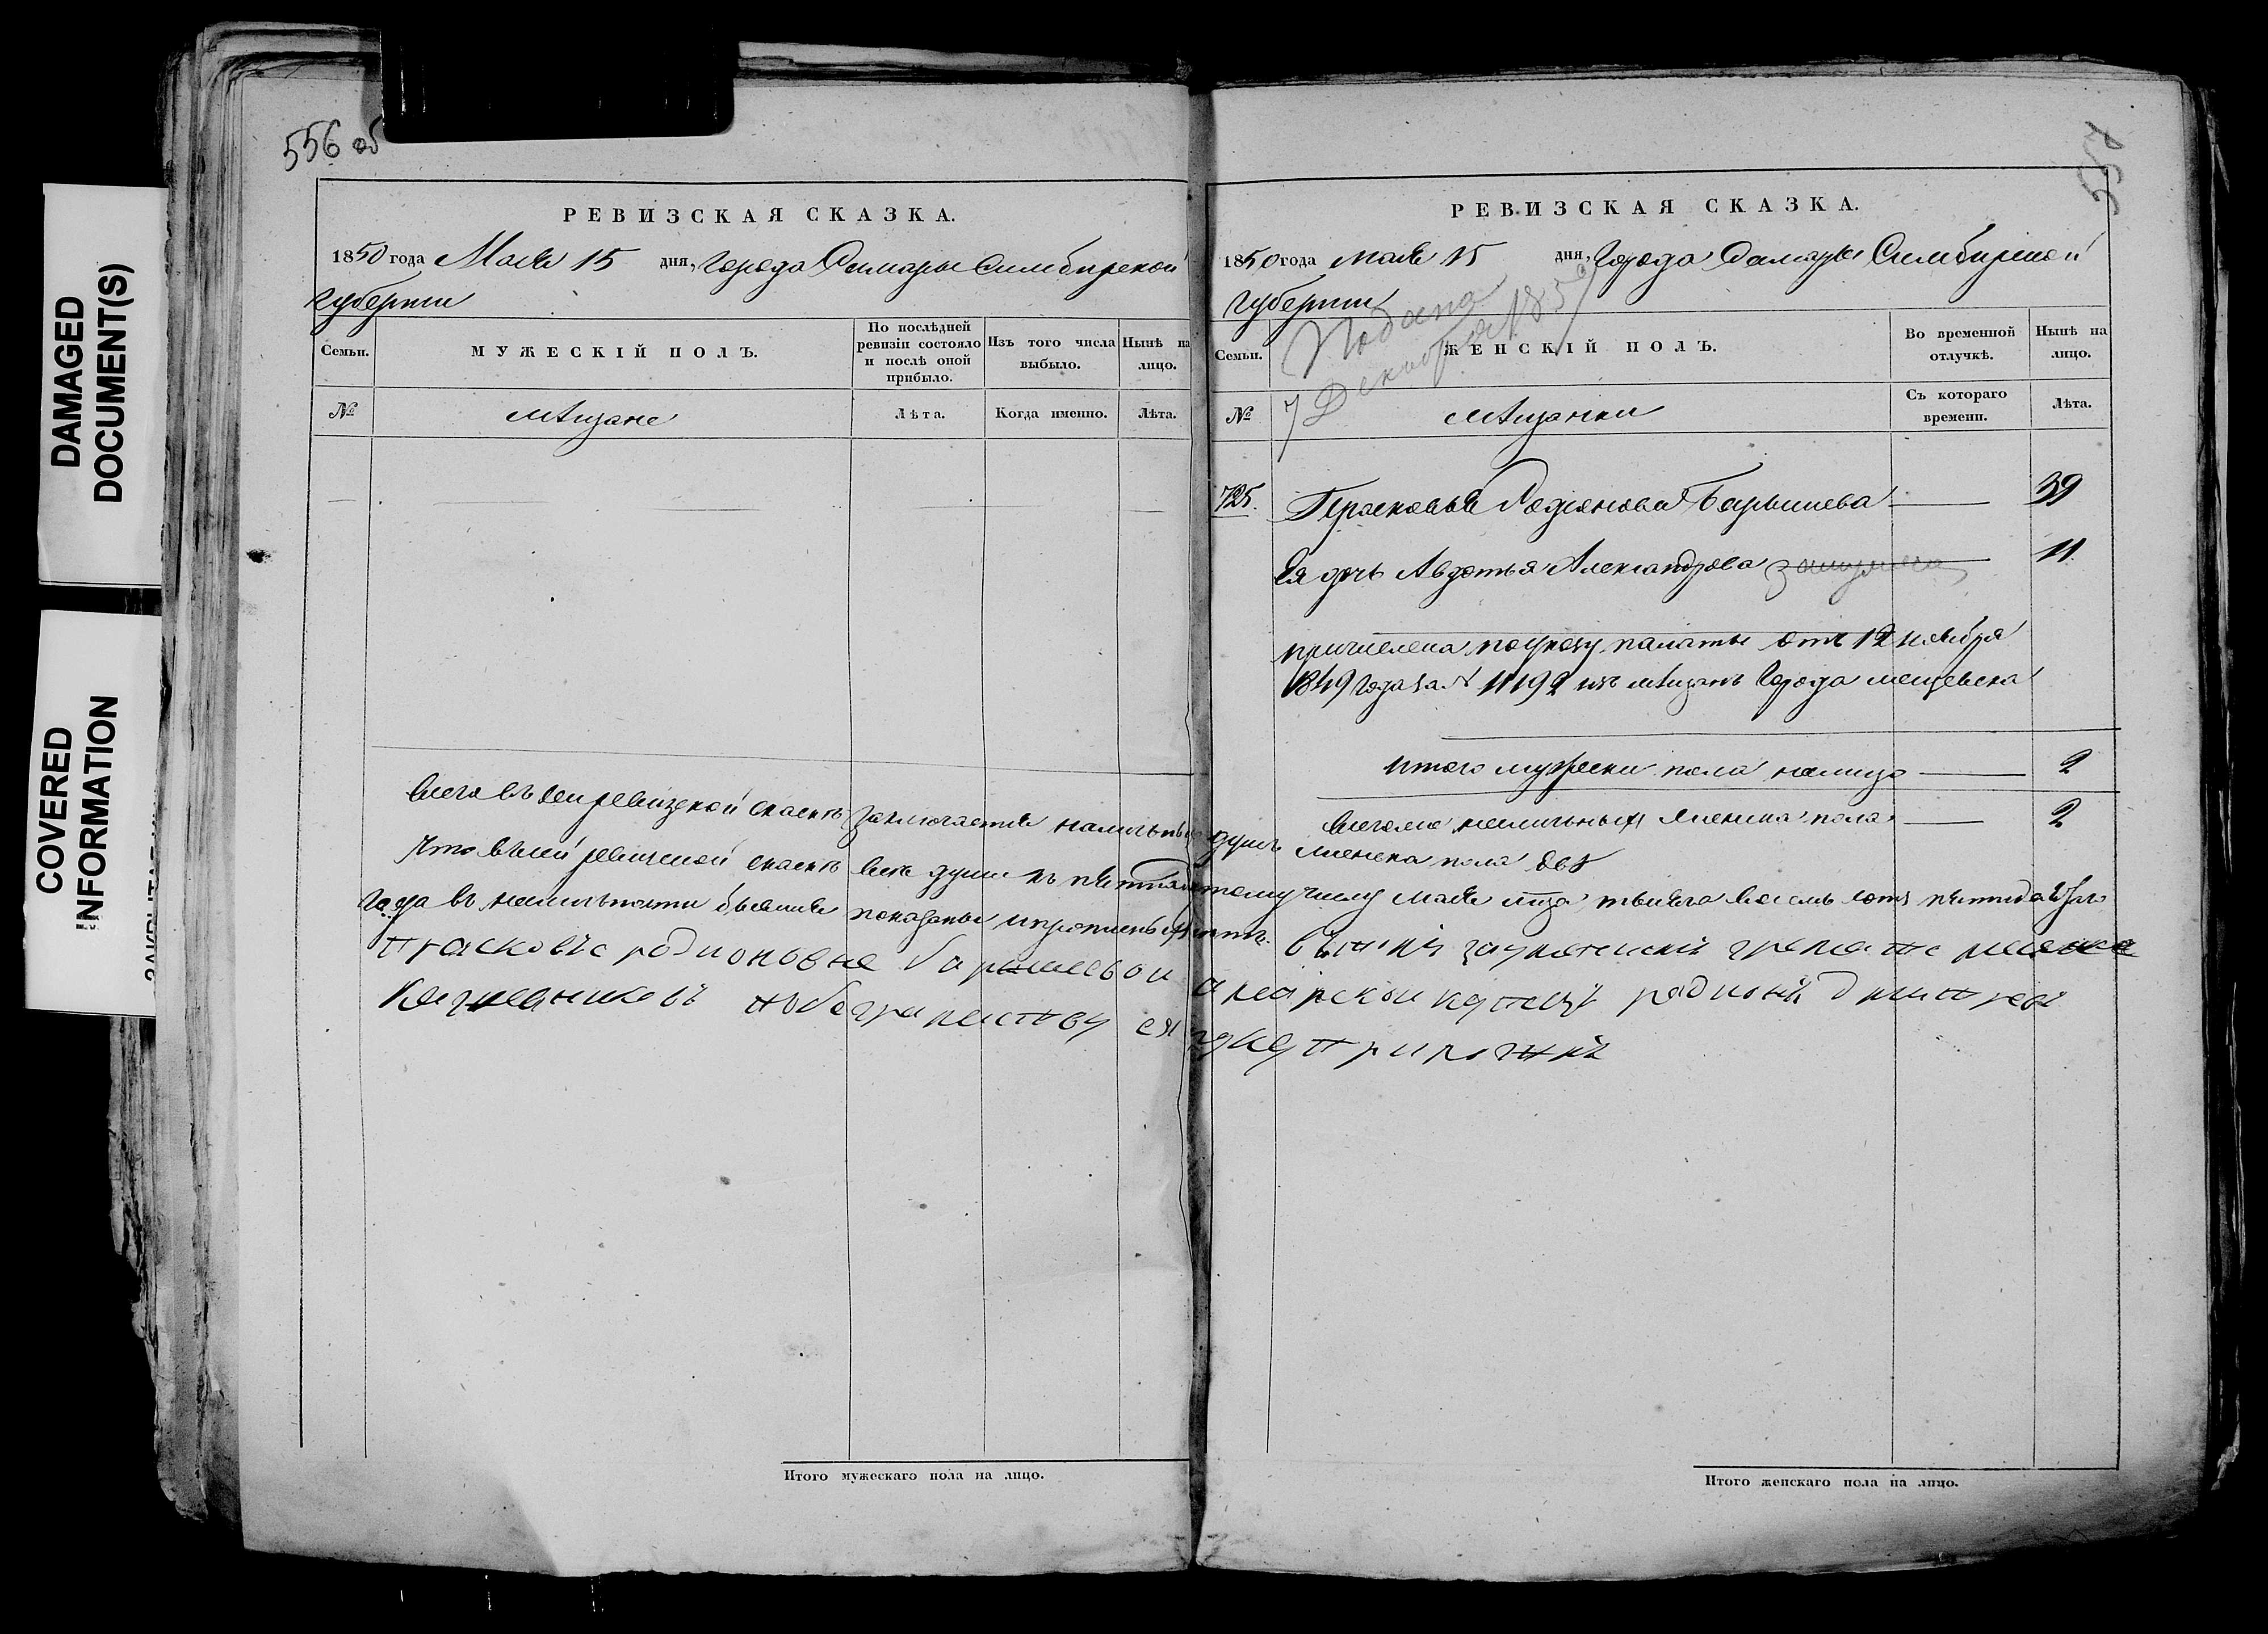 DAMAGED
DOCUMENT(S)
COVERED
INFORMATION
556 об
РЕВИЗСКАЯ СКАЗКА.
1850 года Мая 15 дня, Города Самары Симбирской
губернии
Семьи.
МУЖЕСКІЙ ПОЛЪ.
По послѣдней ревизіи состояло и послѣ оной прибыло.
Изъ того числа выбыло.
Нынѣ на лицо.
№
мѣщане
Лѣта.
Когда именно.
Лѣта.
Итого мужескаго пола на лицо.
557
РЕВИЗСКАЯ СКАЗКА.
1850 года мая 15 дня, Города Самары Симбирской
губернии
Подана
7 Декабря 1850
Семьи.
ЖЕНСКІЙ ПОЛЪ.
Во временной отлучкѣ.
Нынѣ на лицо.
№
мѣщанки
Съ котораго времени.
Лѣта.
725. Прасковья Родионова Барышева 39
Ея дочь Авдотья Александрова 11
причислена по указу палаты отъ 12 ноября
1849 года за № 11192 изъ мѣщанъ города мещевска
итого женска пола налицо 2
Всего наличныхъ женска пола 2
Всего въ сей ревизской сказкѣ заключается наличныхъ душъ женска пола двѣ
Что въ сей ревизской сказкѣ всѣ души къ пятнадцатому числу мая тысяча восемь сотъ пятидесятого
года въ наличности бывшия показаны и прописныхъ нетъ.
прасковье родионовне барышевой
купецъ родионъ дмитревъ
Кожевниковъ руку приложилъ
Итого женскаго пола на лицо.